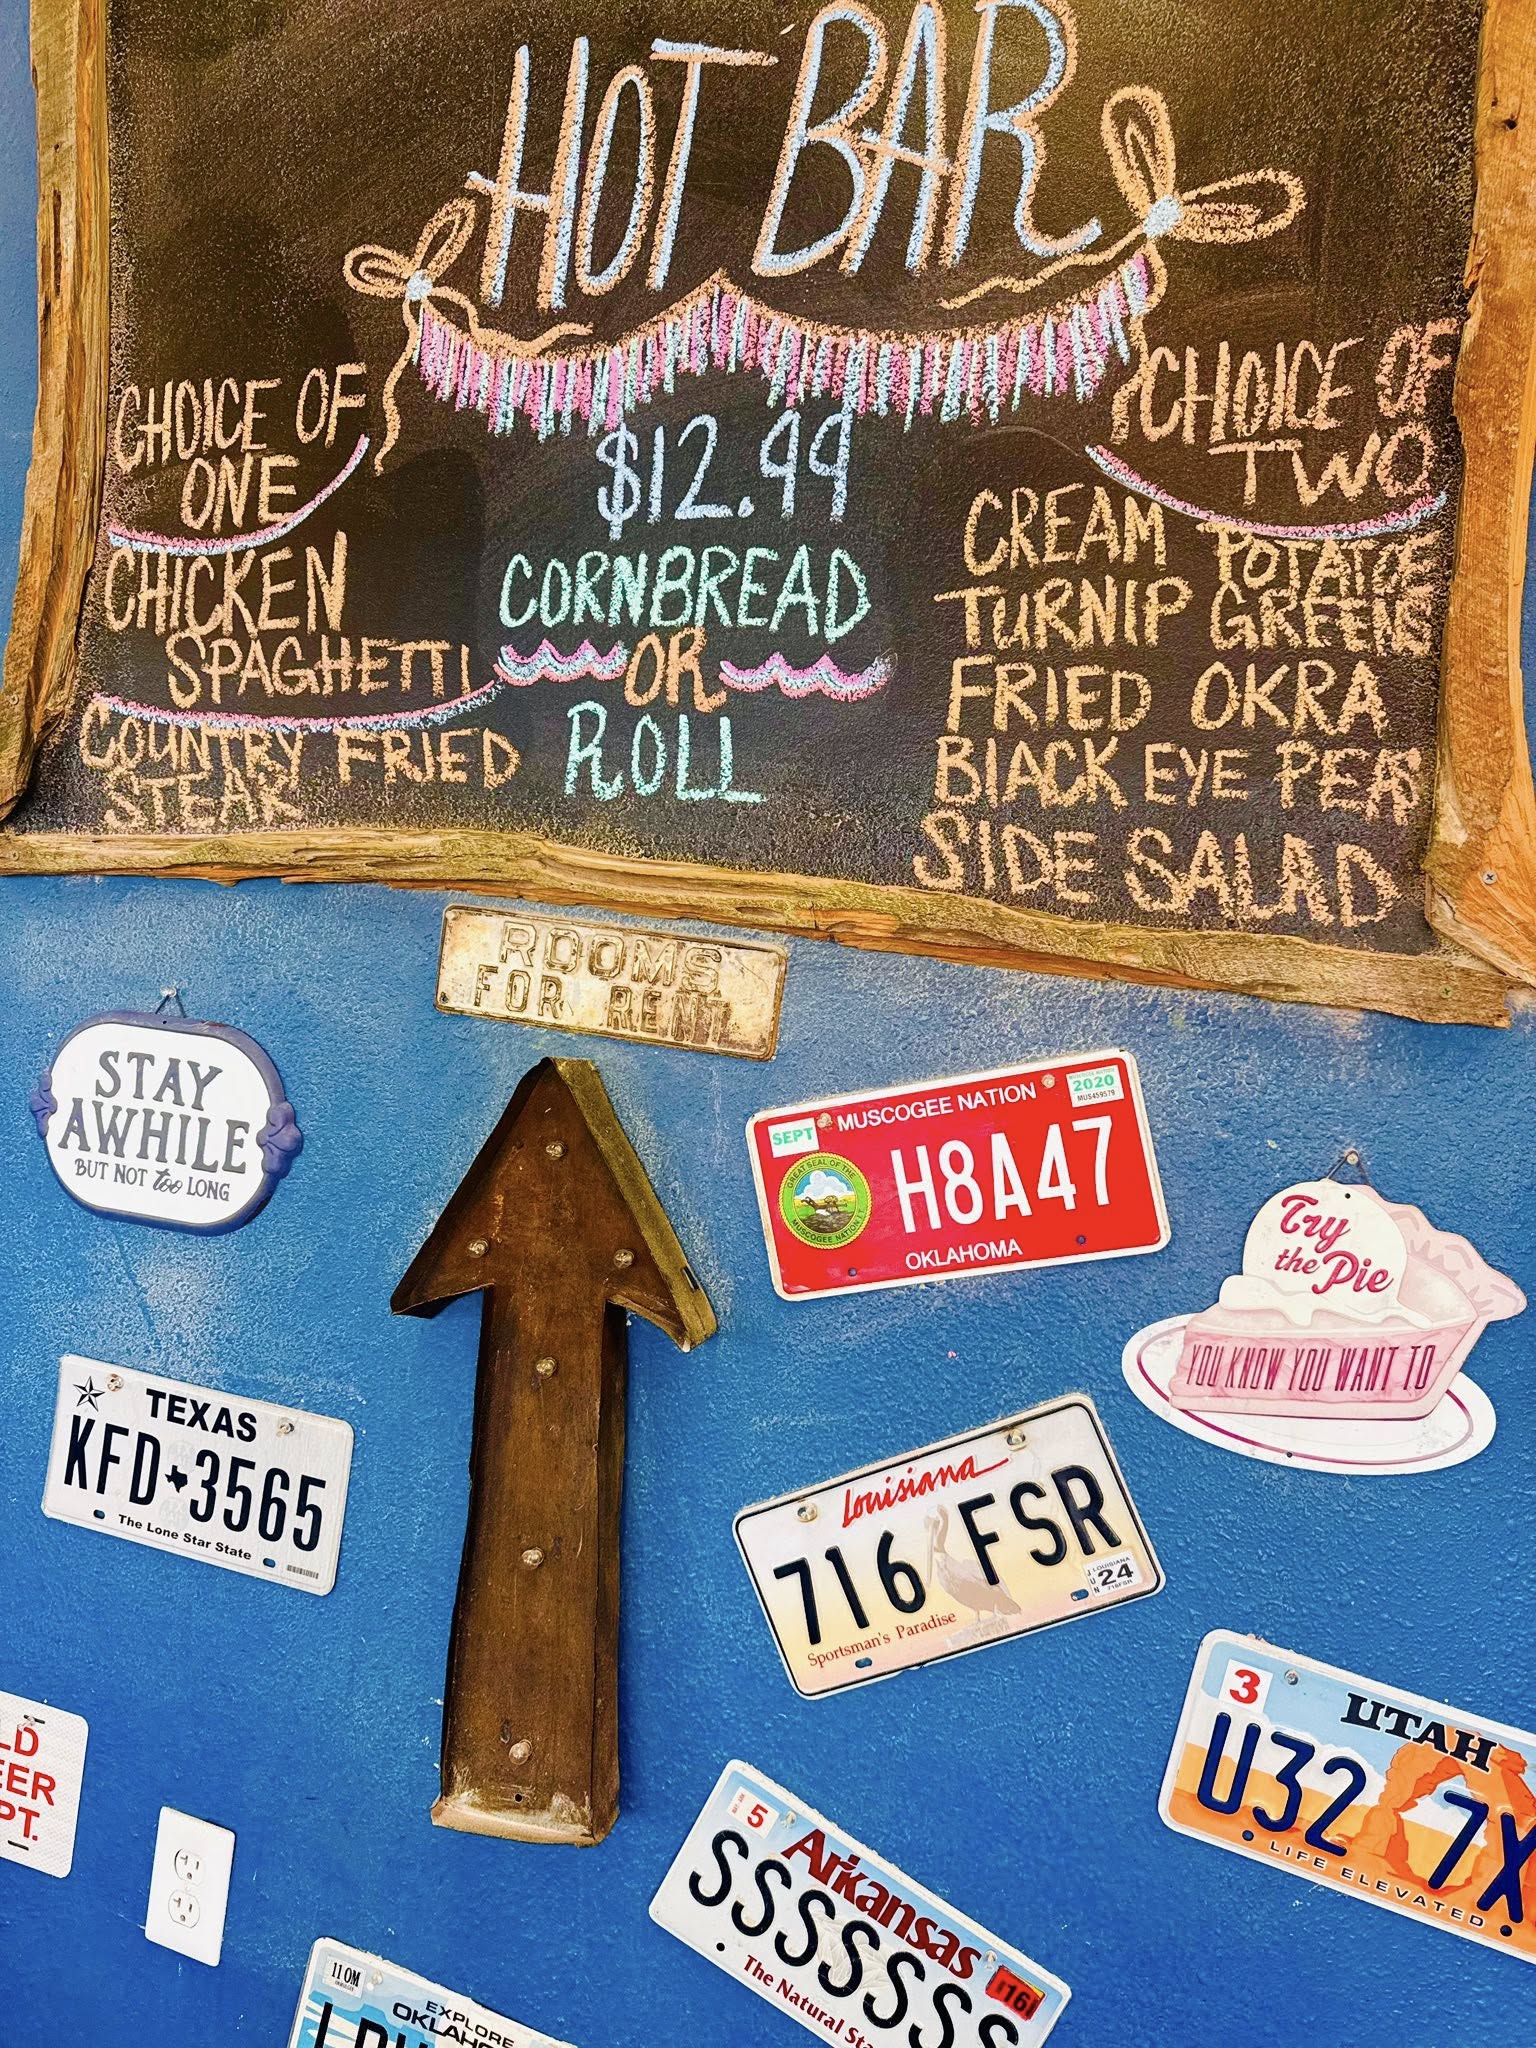 HOT BAR
CHOICE OF
ONE
CHICKEN
SPAGHETTI
COUNTRY FRIED
STEAK
$12.99
CORNBREAD
OR
ROLL
CHOICE OF
TWO
CREAM POTATOE
TURNIP GREENS
FRIED OKRA
BLACK EYE PEAS
SIDE SALAD
ROOMS
FOR RENT
STAY
AWHILE
BUT NOT too LONG
SEPT
MUSCOGEE NATION
MUSCOGEE NATION
2020
MUS459579
GREAT SEAL OF THE
MUSCOGEE NATION
H8A47
OKLAHOMA
Try
the Pie
YOU KNOW YOU WANT TO
TEXAS
KFD 3565
The Lone Star State
Louisiana
716 FSR
JUN
LOUISIANA
24
716FSR
Sportsman's Paradise
3
UTAH
U32 7X
LIFE ELEVATED
LD
EER
PT.
5
Arkansas
SSSSSSS
16
The Natural Sta
110M
EXPLORE
OKLAHO